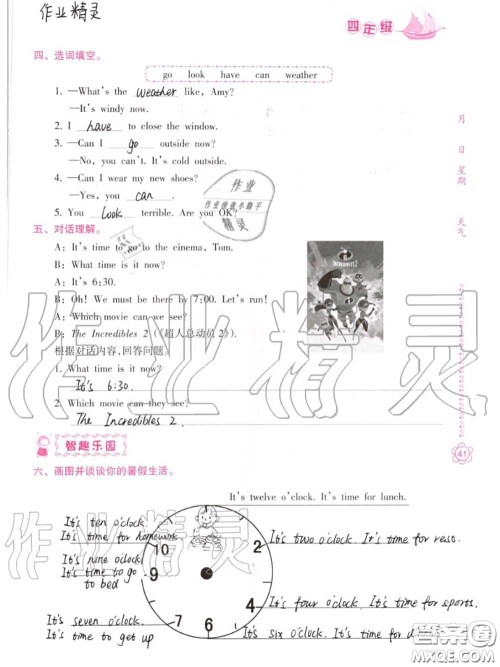 作业精灵
四年级
四、选词填空。
go look have can weather
1. —What's the weather like, Amy?
—It's windy now.
2. I have to close the window.
3. —Can I go outside now?
—No, you can't. It's cold outside.
4. —Can I wear my new shoes?
—Yes, you can.
5. You look terrible. Are you OK?
月
日
星期
天气
五、对话理解。
A: It's time to go to the cinema, Tom.
B: What time is it now?
A: It's 6:30.
B: Oh! We must be there by 7:00. Let's run!
A: Which movie can we see?
B: The Incredibles 2 (《超人总动员 2》).
根据对话内容,回答问题。
1. What time is it now?
It's 6:30.
2. Which movie can they see?
The Incredibles 2.
41
智趣乐园
六、画图并谈谈你的暑假生活。
It's twelve o'clock. It's time for lunch.
It's ten o'clock
It's time for homework
It's nine o'clock
It's time to go
to bed
It's seven o'clock.
It's time to get up
10
9
7
6
2
It's two o'clock. It's time for rest.
It's four o'clock. It's time for sports.
It's six o'clock. It's time for
作业
精灵
作业精灵
作业精灵
答案圈
MXQE.COM